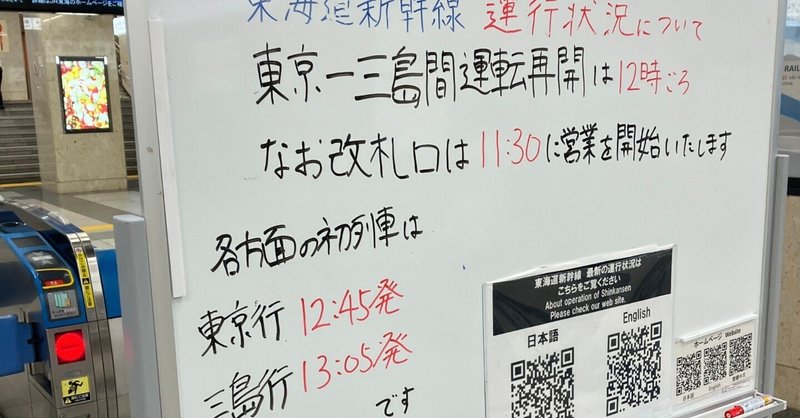 東海道新幹線 運行状況について
東京ー三島間運転再開は12時ごろ
なお改札口は11:30に営業を開始いたします
各方面の初列車は
東京行 12:45発
三島行 13:05発
です
東海道新幹線 最新の運行状況は
こちらをご覧ください
About operation of Shinkansen
Please check our web site.
日本語
English
ホームページ Website
日本語
English
RAIL